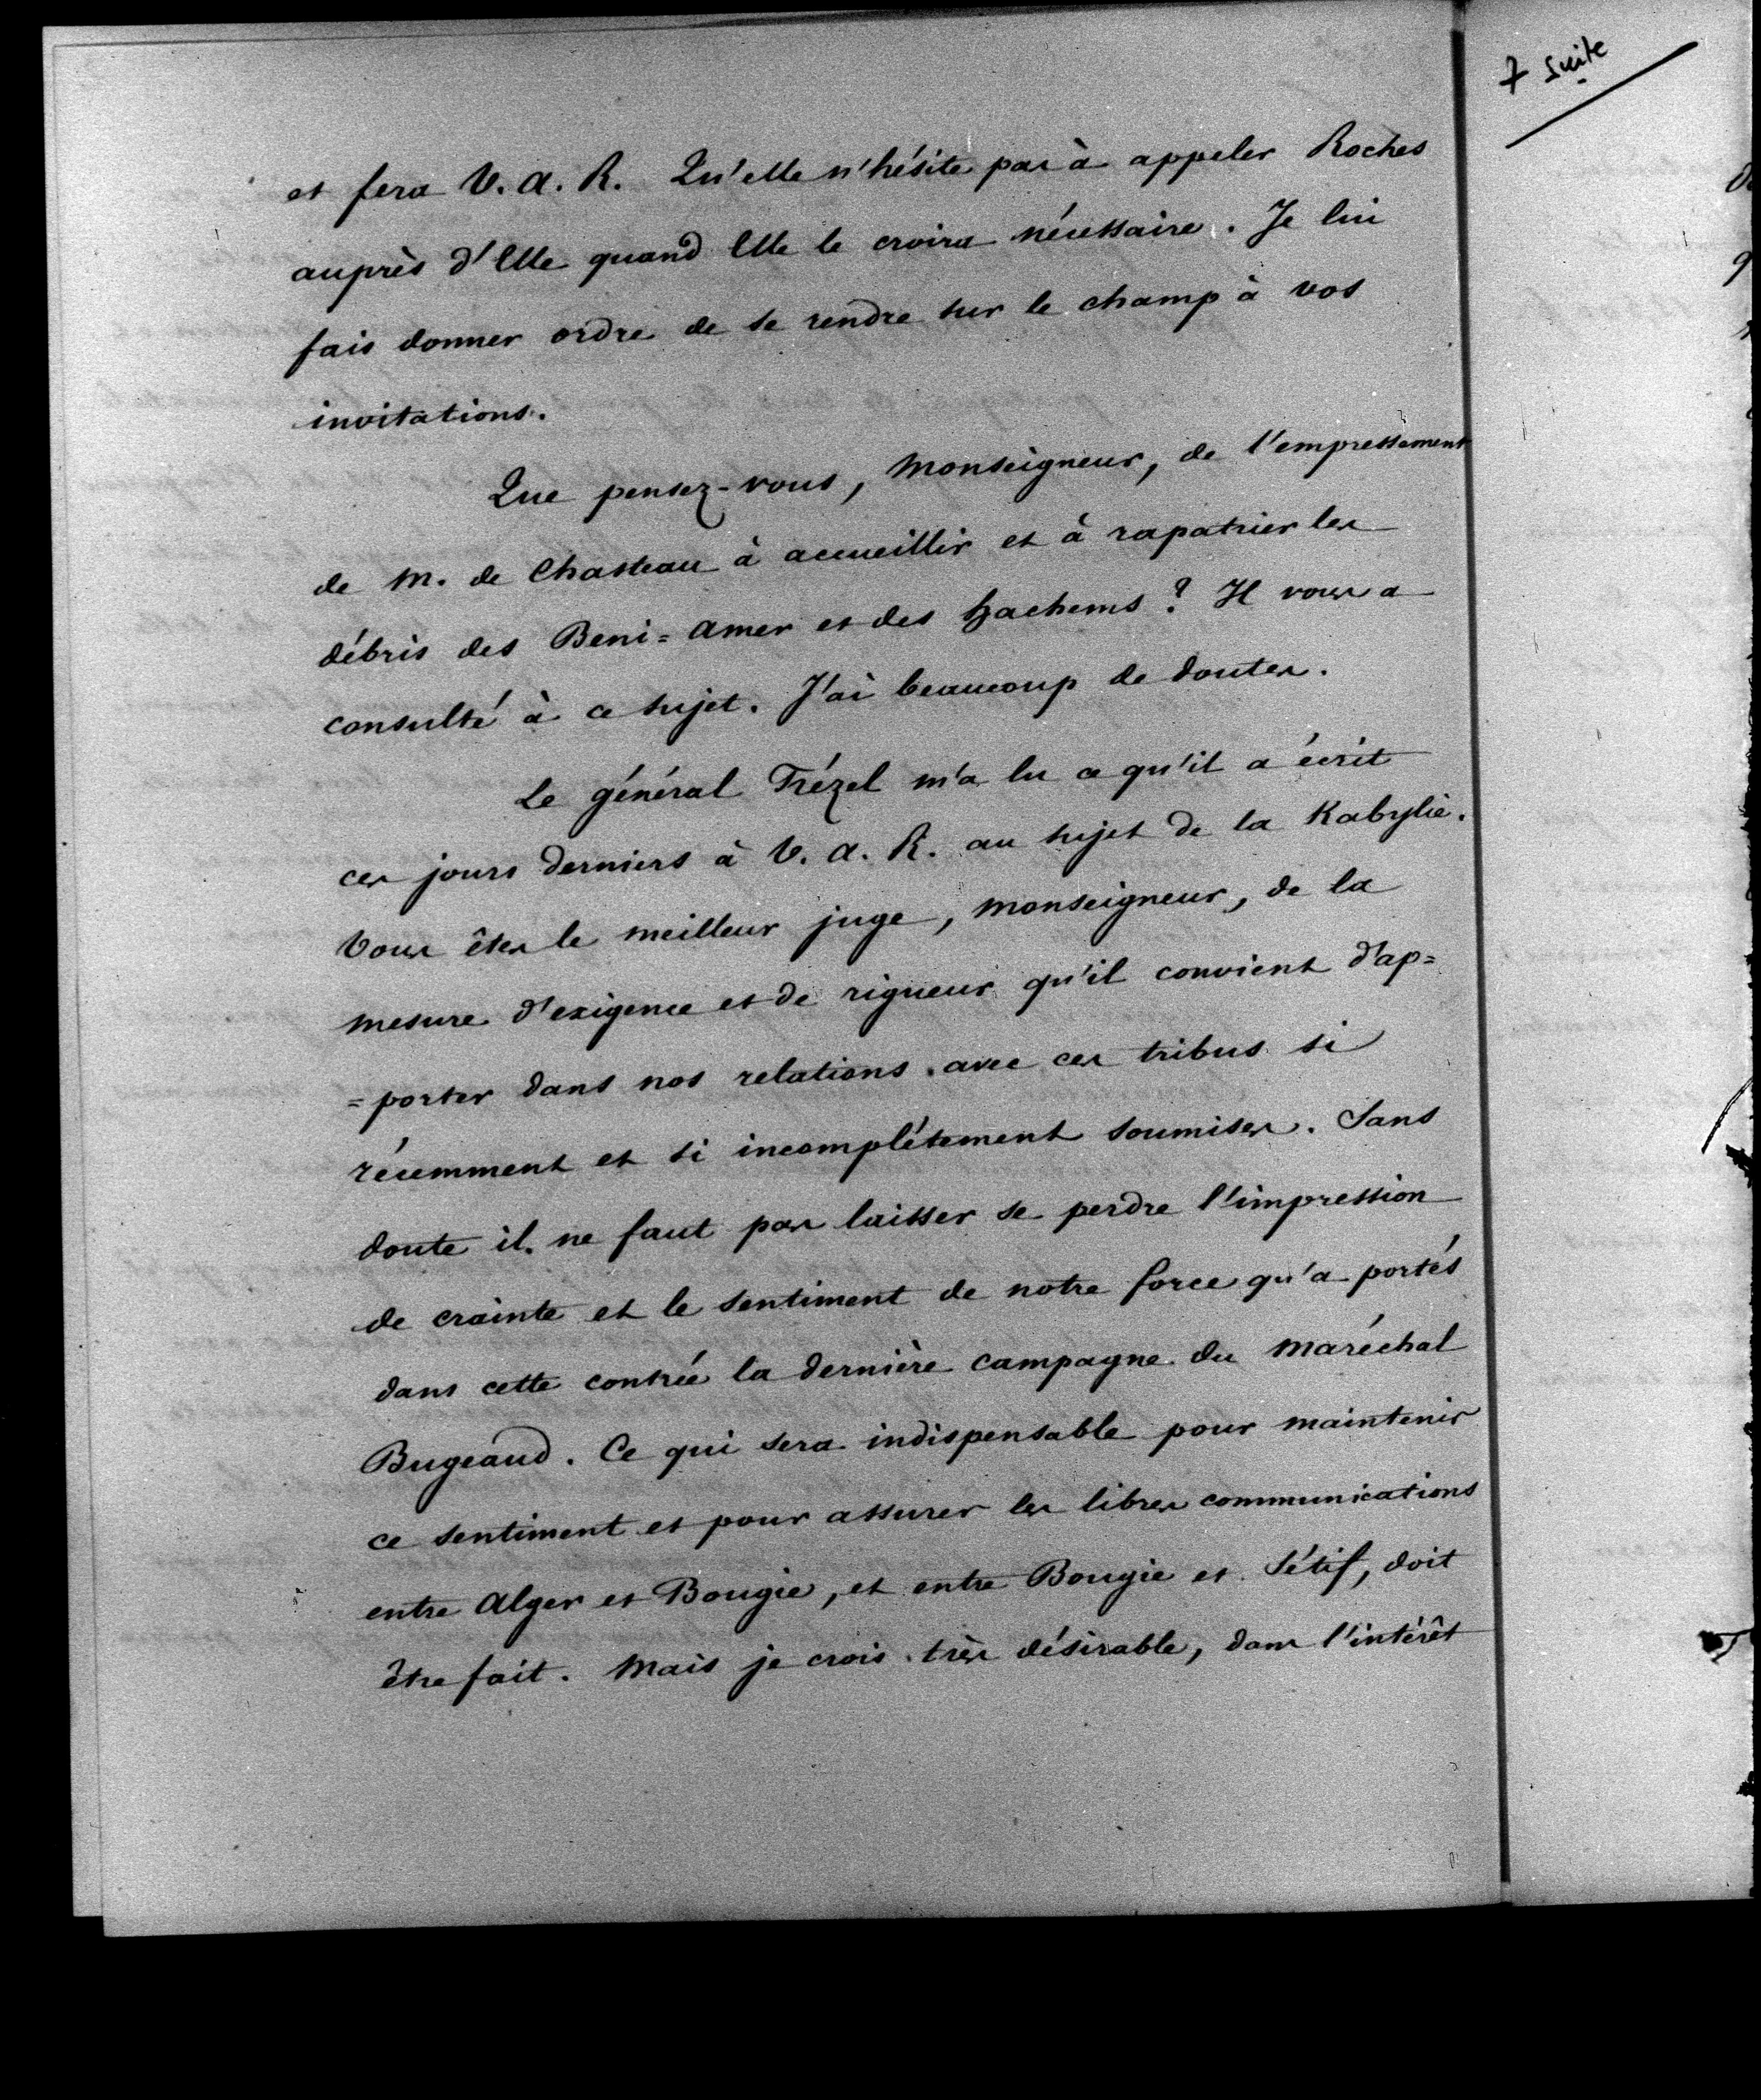 7 suite
et fera V. A. R. Qu'elle n'hésite pas à appeler Roches
auprès d'Elle quand Elle le croira nécessaire. Je lui
fais donner ordre de se rendre sur le champ à vos
invitations.
Que pensez-vous, Monseigneur, de l'empressement
de M. de Chasteau à accueillir et à rapatrier les
débris des Beni=Amer et des hachems ? Il vous a
consulté à ce sujet. J'ai beaucoup de doutes.
Le général Trézel m'a lu ce qu'il a écrit
ces jours derniers à V. A. R. au sujet de la Kabylie.
Vous êtes le meilleur juge, Monseigneur, de la
mesure d'exigence et de rigueur qu'il convient d'ap=
=porter dans nos relations avec ces tribus si
récemment et si incomplétement soumises. Sans
doute il ne faut pas laisser se perdre l'impression
de crainte et le sentiment de notre force qu'a portés
dans cette contrée la dernière campagne du Maréchal
Bugeaud. Ce qui sera indispensable pour maintenir
ce sentiment et pour assurer les libres communications
entre Alger et Bougie, et entre Bougie et Sétif, doit
être fait. Mais je crois très désirable, dans l'intérêt